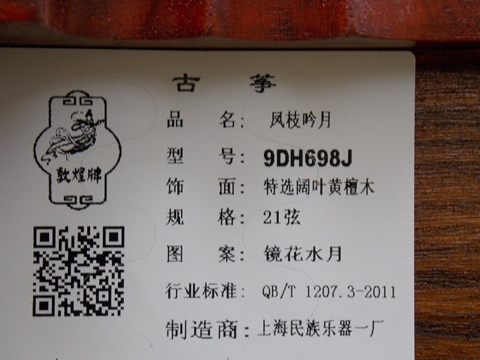 古 筝
品 名: 凤枝吟月
型 号: 9DH698J
饰 面: 特选阔叶黄檀木
规 格: 21弦
图 案: 镜花水月
行业标准: QB/T 1207.3-2011
制造商: 上海民族乐器一厂
敦煌牌